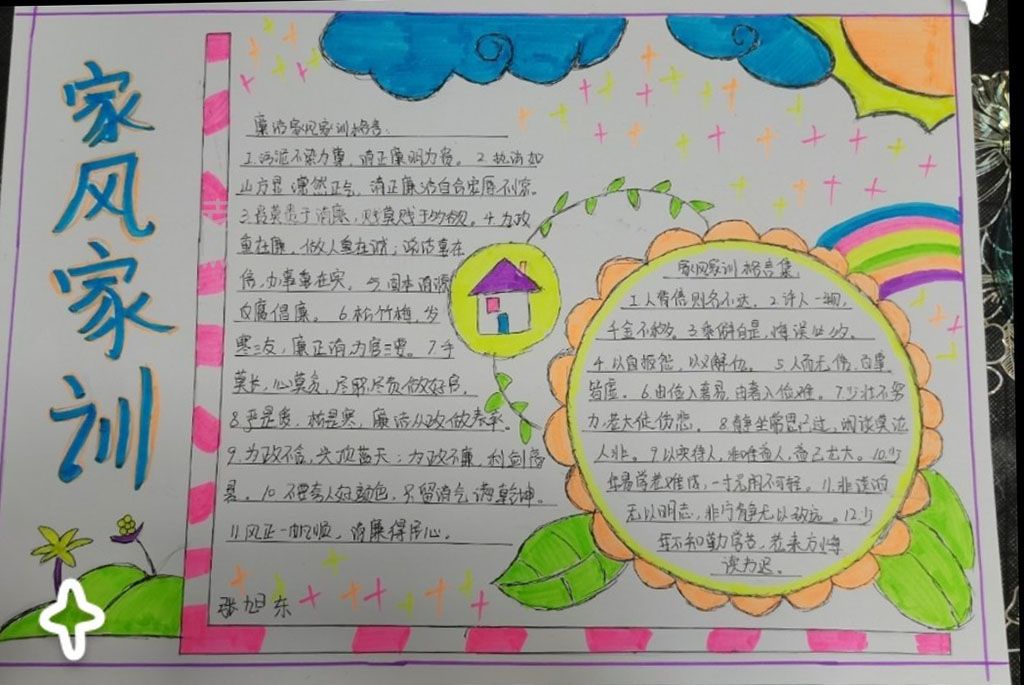 家风家训
廉洁家风家训格言:
1.污泥不染为莲，清正廉明为贤。2.执法如
山方显浩然正气，清正廉洁自会宏厚不窃。
3.最莫贵于清廉，贬莫贱于贪。4.为政
重在廉，做人重在诚；谈话重在
信，办事重在实。5.固本清源
反腐倡廉。6.松竹梅，岁
寒三友，廉正清为官三要。7.手
莫长，心莫贪，尽职尽责做好官。
8.严是爱，松是害，廉洁从政做表率。
9.为政不贪，头顶蓝天；为政不廉，利剑高
悬。10.不要夸人好颜色，只留清气满乾坤。
11.风正一帆顺，清廉得民心。
张旭东
家风家训格言集
1.人背信则名不达。2.许人一物，
千金不移。3.乘僻自是，悔误必多。
4.以自报怨，以义解仇。5.人而无信，百事
皆虚。6.由俭入奢易，由奢入俭难。7.少壮不努
力，老大徒伤悲。8.静坐常思己过，闲谈莫论
人非。9.以实待人，非唯益人，益己尤大。10.少
年易学老难成，一寸光阴不可轻。11.非淡泊
无以明志，非宁静无以致远。12.少
年不知勤学苦，老来方悔
读书迟。